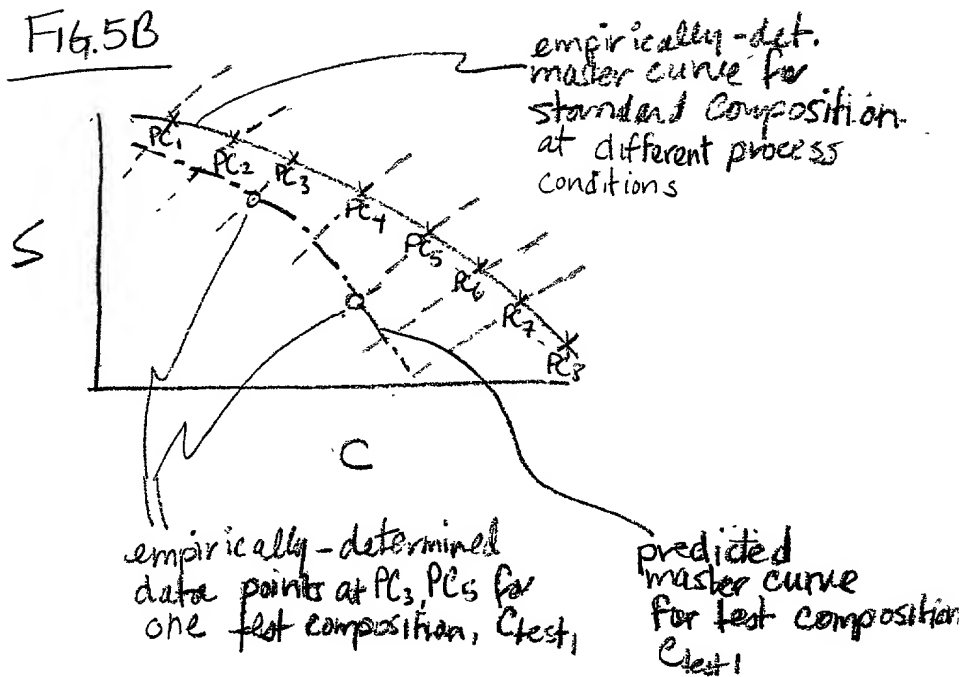 FIG. 5B
empirically-det.
master curve for
standard composition
at different process
conditions
PC1
PC2
PC3
PC4
PC5
PC6
PC7
PC8
S
C
empirically-determined
data points at PC3, PC5 for
one test composition, Ctest1
predicted
master curve
for test composition
Ctest1